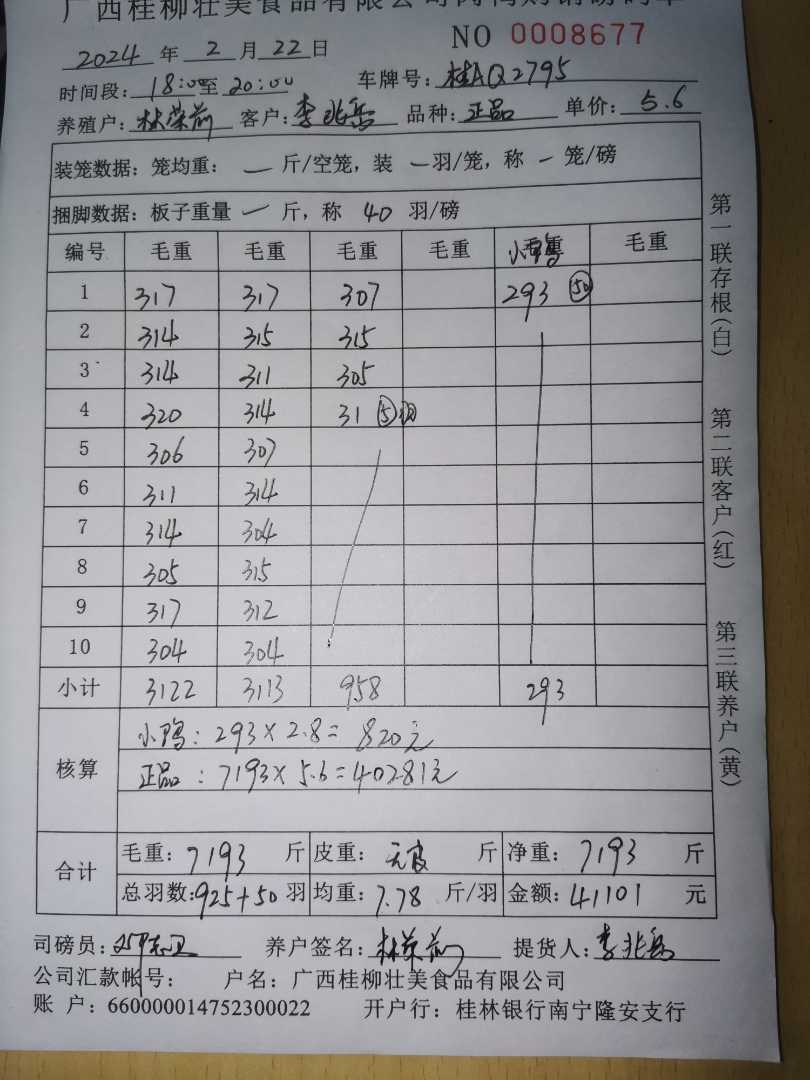 广西桂柳壮美食品有限公司
NO 0008677
2024 年 2 月 22 日
时间段: 18:00 至 20:00 车牌号: 桂AQ2795
养殖户: 林荣前 客户: 李兆岳 品种: 正品 单价: 5.6
装笼数据: 笼均重: 一 斤/空笼, 装 一 羽/笼, 称 一 笼/磅
捆脚数据: 板子重量 一 斤, 称 40 羽/磅
编号 毛重 毛重 毛重 毛重 小鸭 毛重
1 317 317 307 293 50
2 314 315 315
3 314 311 305
4 320 314 31 5羽
5 306 307
6 311 314
7 314 304
8 305 315
9 317 312
10 304 304
小计 3122 3113 958 293
核算 小鸭: 293×2.8= 820元
正品: 7193×5.6=40281元
合计 毛重: 7193 斤 皮重: 无皮 斤 净重: 7193 斤
总羽数: 925+50 羽 均重: 7.78 斤/羽 金额: 41101 元
司磅员: 养户签名: 林荣前 提货人: 李兆岳
公司汇款帐号: 户名: 广西桂柳壮美食品有限公司
账 户: 660000014752300022 开户行: 桂林银行南宁隆安支行
第一联存根(白) 第二联客户(红) 第三联养户(黄)